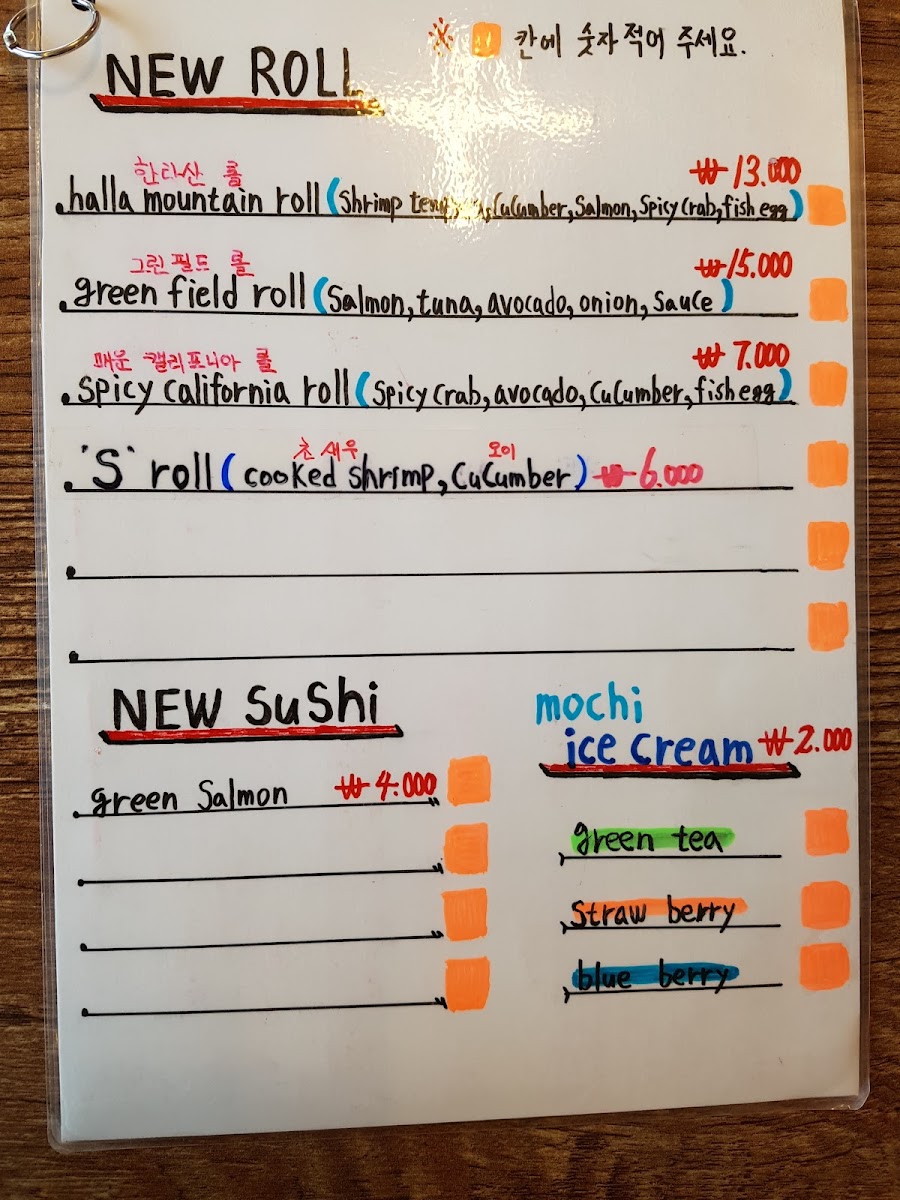 ※ 칸에 숫자 적어 주세요.
NEW ROLL
한라산 롤 ₩13.000
halla mountain roll (shrimp Cucumber, Salmon, Spicy Crab, fish egg)
그린 필드 롤 ₩15.000
green field roll (Salmon, tuna, avocado, onion, Sauce)
매운 캘리포니아 롤 ₩7.000
Spicy california roll (Spicy Crab, avocado, CuCumber, fish egg)
초새우 오이
'S' roll (cooked shrimp, CuCumber) ₩6.000
NEW SuShi
green Salmon ₩4.000
mochi
ice cream ₩2.000
green tea
Straw berry
blue berry